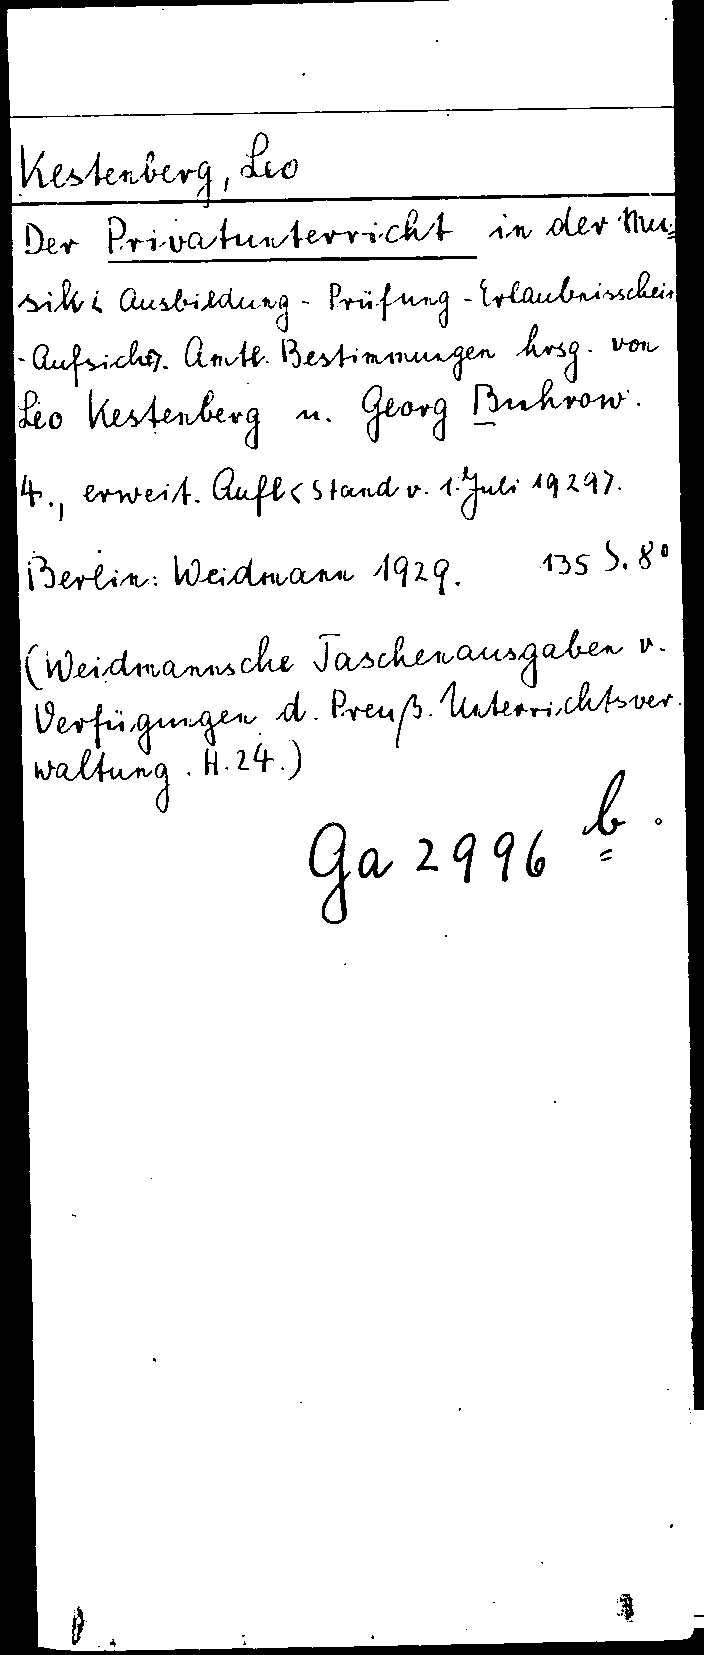 Kestenberg, Leo
Der Privatunterricht in der Mu-
sik < Ausbildung - Prüfung - Erlaubnisschein
- Aufsicht>. Amtl. Bestimmungen hrsg. von
Leo Kestenberg u. Georg Buhrow.
4., erweit. Aufl < Stand v. 1. Juli 1929>.
Berlin: Weidmann 1929. 135 S. 8°
(Weidmannsche Taschenausgaben v.
Verfügungen d. Preuß. Unterrichtsver
waltung. H. 24.)
Ga 2996 b.